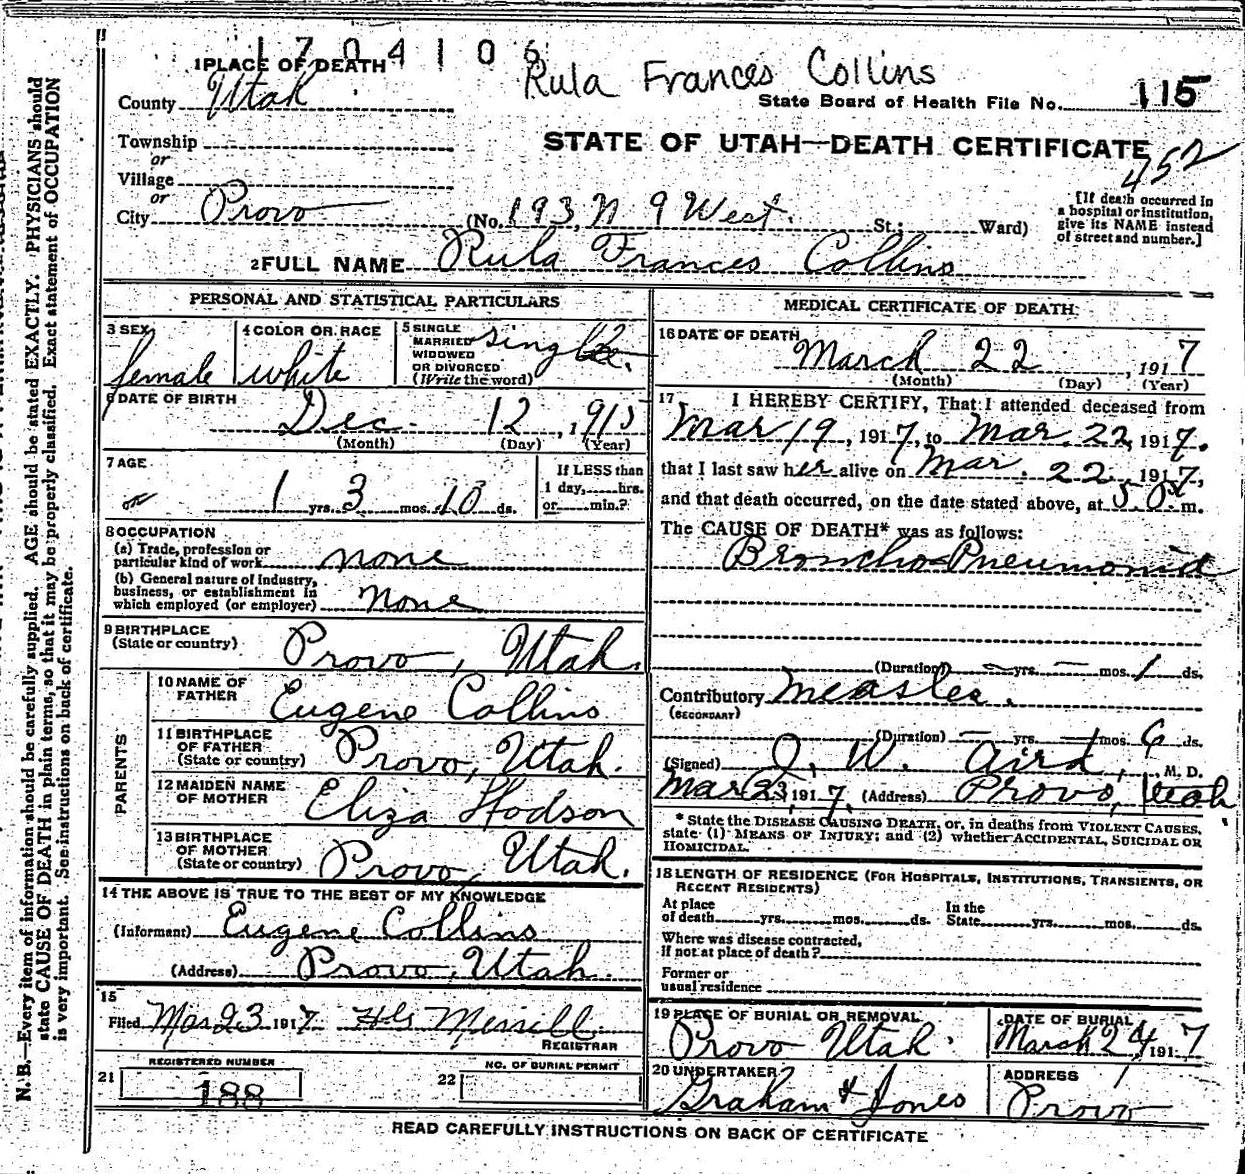 1704106
Rula Frances Collins
1 PLACE OF DEATH
County Utah
State Board of Health File No. 115
Township
or
Village
or
City Provo
STATE OF UTAH—DEATH CERTIFICATE
452
(No. 193 N 9 West. St.; Ward)
[If death occurred in
a hospital or institution,
give its NAME instead
of street and number.]
2 FULL NAME Rula Frances Collins
PERSONAL AND STATISTICAL PARTICULARS
3 SEX
female
4 COLOR OR RACE
white
5 SINGLE
MARRIED
WIDOWED
OR DIVORCED
(Write the word)
single.
6 DATE OF BIRTH
Dec. 12, 1915
(Month) (Day) (Year)
7 AGE
1 yrs. 3 mos. 10 ds.
If LESS than
1 day, hrs.
or min.?
8 OCCUPATION
(a) Trade, profession or
particular kind of work none
(b) General nature of industry,
business, or establishment in
which employed (or employer) none
9 BIRTHPLACE
(State or country) Provo, Utah.
PARENTS
10 NAME OF
FATHER Eugene Collins
11 BIRTHPLACE
OF FATHER
(State or country) Provo, Utah.
12 MAIDEN NAME
OF MOTHER Eliza Hodson
13 BIRTHPLACE
OF MOTHER
(State or country) Provo, Utah.
14 THE ABOVE IS TRUE TO THE BEST OF MY KNOWLEDGE
(Informant) Eugene Collins
(Address) Provo, Utah.
15
Filed Mar 23 1917 Merrill
REGISTRAR
REGISTERED NUMBER
21 188
NO. OF BURIAL PERMIT
22
MEDICAL CERTIFICATE OF DEATH
16 DATE OF DEATH
March 22, 1917
(Month) (Day) (Year)
17 I HEREBY CERTIFY, That I attended deceased from
Mar 19, 1917, to Mar. 22, 1917.
that I last saw her alive on Mar. 22, 1917,
and that death occurred, on the date stated above, at 5 m.
The CAUSE OF DEATH* was as follows:
Broncho-Pneumonia
(Duration) — yrs. — mos. 1 ds.
Contributory Measles.
(SECONDARY)
(Duration) — yrs. — mos. 6 ds.
(Signed) J. W. Aird, M. D.
Mar 23, 1917. (Address) Provo, Utah
* State the DISEASE CAUSING DEATH, or, in deaths from VIOLENT CAUSES,
state (1) MEANS OF INJURY; and (2) whether ACCIDENTAL, SUICIDAL OR
HOMICIDAL.
18 LENGTH OF RESIDENCE (FOR HOSPITALS, INSTITUTIONS, TRANSIENTS, OR
RECENT RESIDENTS)
At place
of death yrs. mos. ds.
In the
State yrs. mos. ds.
Where was disease contracted,
if not at place of death?
Former or
usual residence
19 PLACE OF BURIAL OR REMOVAL
Provo Utah.
DATE OF BURIAL
March 24, 1917
20 UNDERTAKER
Graham & Jones
ADDRESS
Provo
READ CAREFULLY INSTRUCTIONS ON BACK OF CERTIFICATE
N. B.—Every item of information should be carefully supplied. AGE should be stated EXACTLY. PHYSICIANS should
state CAUSE OF DEATH in plain terms, so that it may be properly classified. Exact statement of OCCUPATION
is very important. See instructions on back of certificate.